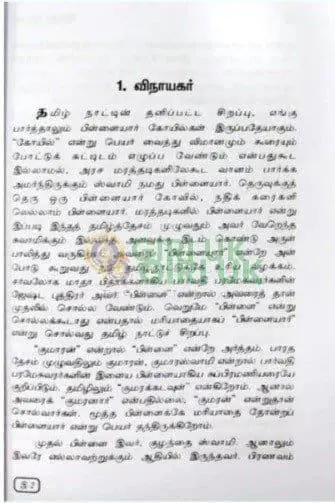 1. விநாயகர்
தமிழ் நாட்டின் தனிப்பட்ட சிறப்பு, எங்கு
பார்த்தாலும் பிள்ளையார் கோயில்கள் இருப்பதேயாகும்.
“கோயில்” என்று பெயர் வைத்து விமானமும் கூரையும்
போட்டுக் கட்டிடம் எழுப்ப வேண்டும் என்பதுகூட
இல்லாமல், அரச மரத்தடிகளிலேகூட வானம் பார்க்க
அமர்ந்திருக்கும் ஸ்வாமி நமது பிள்ளையார். தெருவுக்குத்
தெரு ஒரு பிள்ளையார் கோவில், நதிக் கரைகளி
லெல்லாம் பிள்ளையார். மரத்தடிகளில் பிள்ளையார் என்று
இப்படி இந்தத் தமிழ்த்தேசம் முழுவதும் அவர் வேறெந்த
ஸ்வாமிக்கும் கொண்டு அருள்
பாலித்து வருகி அன்
போடு கூறுவது தமிழ்நாட்டு வழக்கம்.
சாவலோக மாதா பிதாக்களான பரமேசுவரர்களின்
ஜேஷ்ட புத்திரர் அவர் “பிள்ளை” என்றால் அவரைத் தான்
முதலில் சொல்ல வேண்டும். வெறுமே “பிள்ளை” என்று
சொல்லக்கூடாது என்பதால் மரியாதையாகப் “பிள்ளையார்”
என்று சொல்வது தமிழ் நாட்டுச் சிறப்பு.
“குமாரன்” என்றால் “பிள்ளை” என்றே அர்த்தம். பாரத
தேசம் முழுவதிலும் குமாரன், குமாரஸ்வாமி என்றால் பார்வதி
பரமேசுவரர்களின் இளைய பிள்ளையாகிய சுப்பிரமணியரையே
குறிப்பிடும். தமிழிலும் “குமரக்கடவுள்” என்கிறோம். ஆனால்
அவரைக் “குமரனார்” என்பதில்லை; “குமரன்” என்றுதான்
சொல்வார்கள். மூத்த பிள்ளைக்கே மரியாதை தோன்றப்
பிள்ளையார் என்று பெயர் தந்திருக்கிறோம்.
முதல் பிள்ளை இவர், குழந்தை ஸ்வாமி. ஆனாலும்
இவரே எல்லாவற்றுக்கும் ஆதியில் இருந்தவர். பிரணவம்